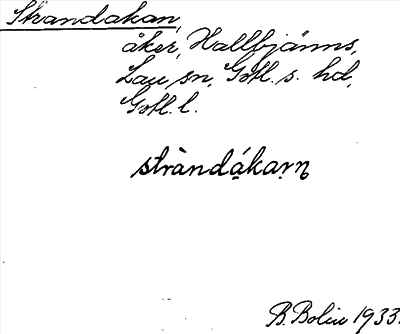 Strandåkan,
åker, Hallbjänns,
Lau sn, Gotl. s. hd,
Gotl. l.
stràndá̤kaṛṇ
B. Bolin 1933.